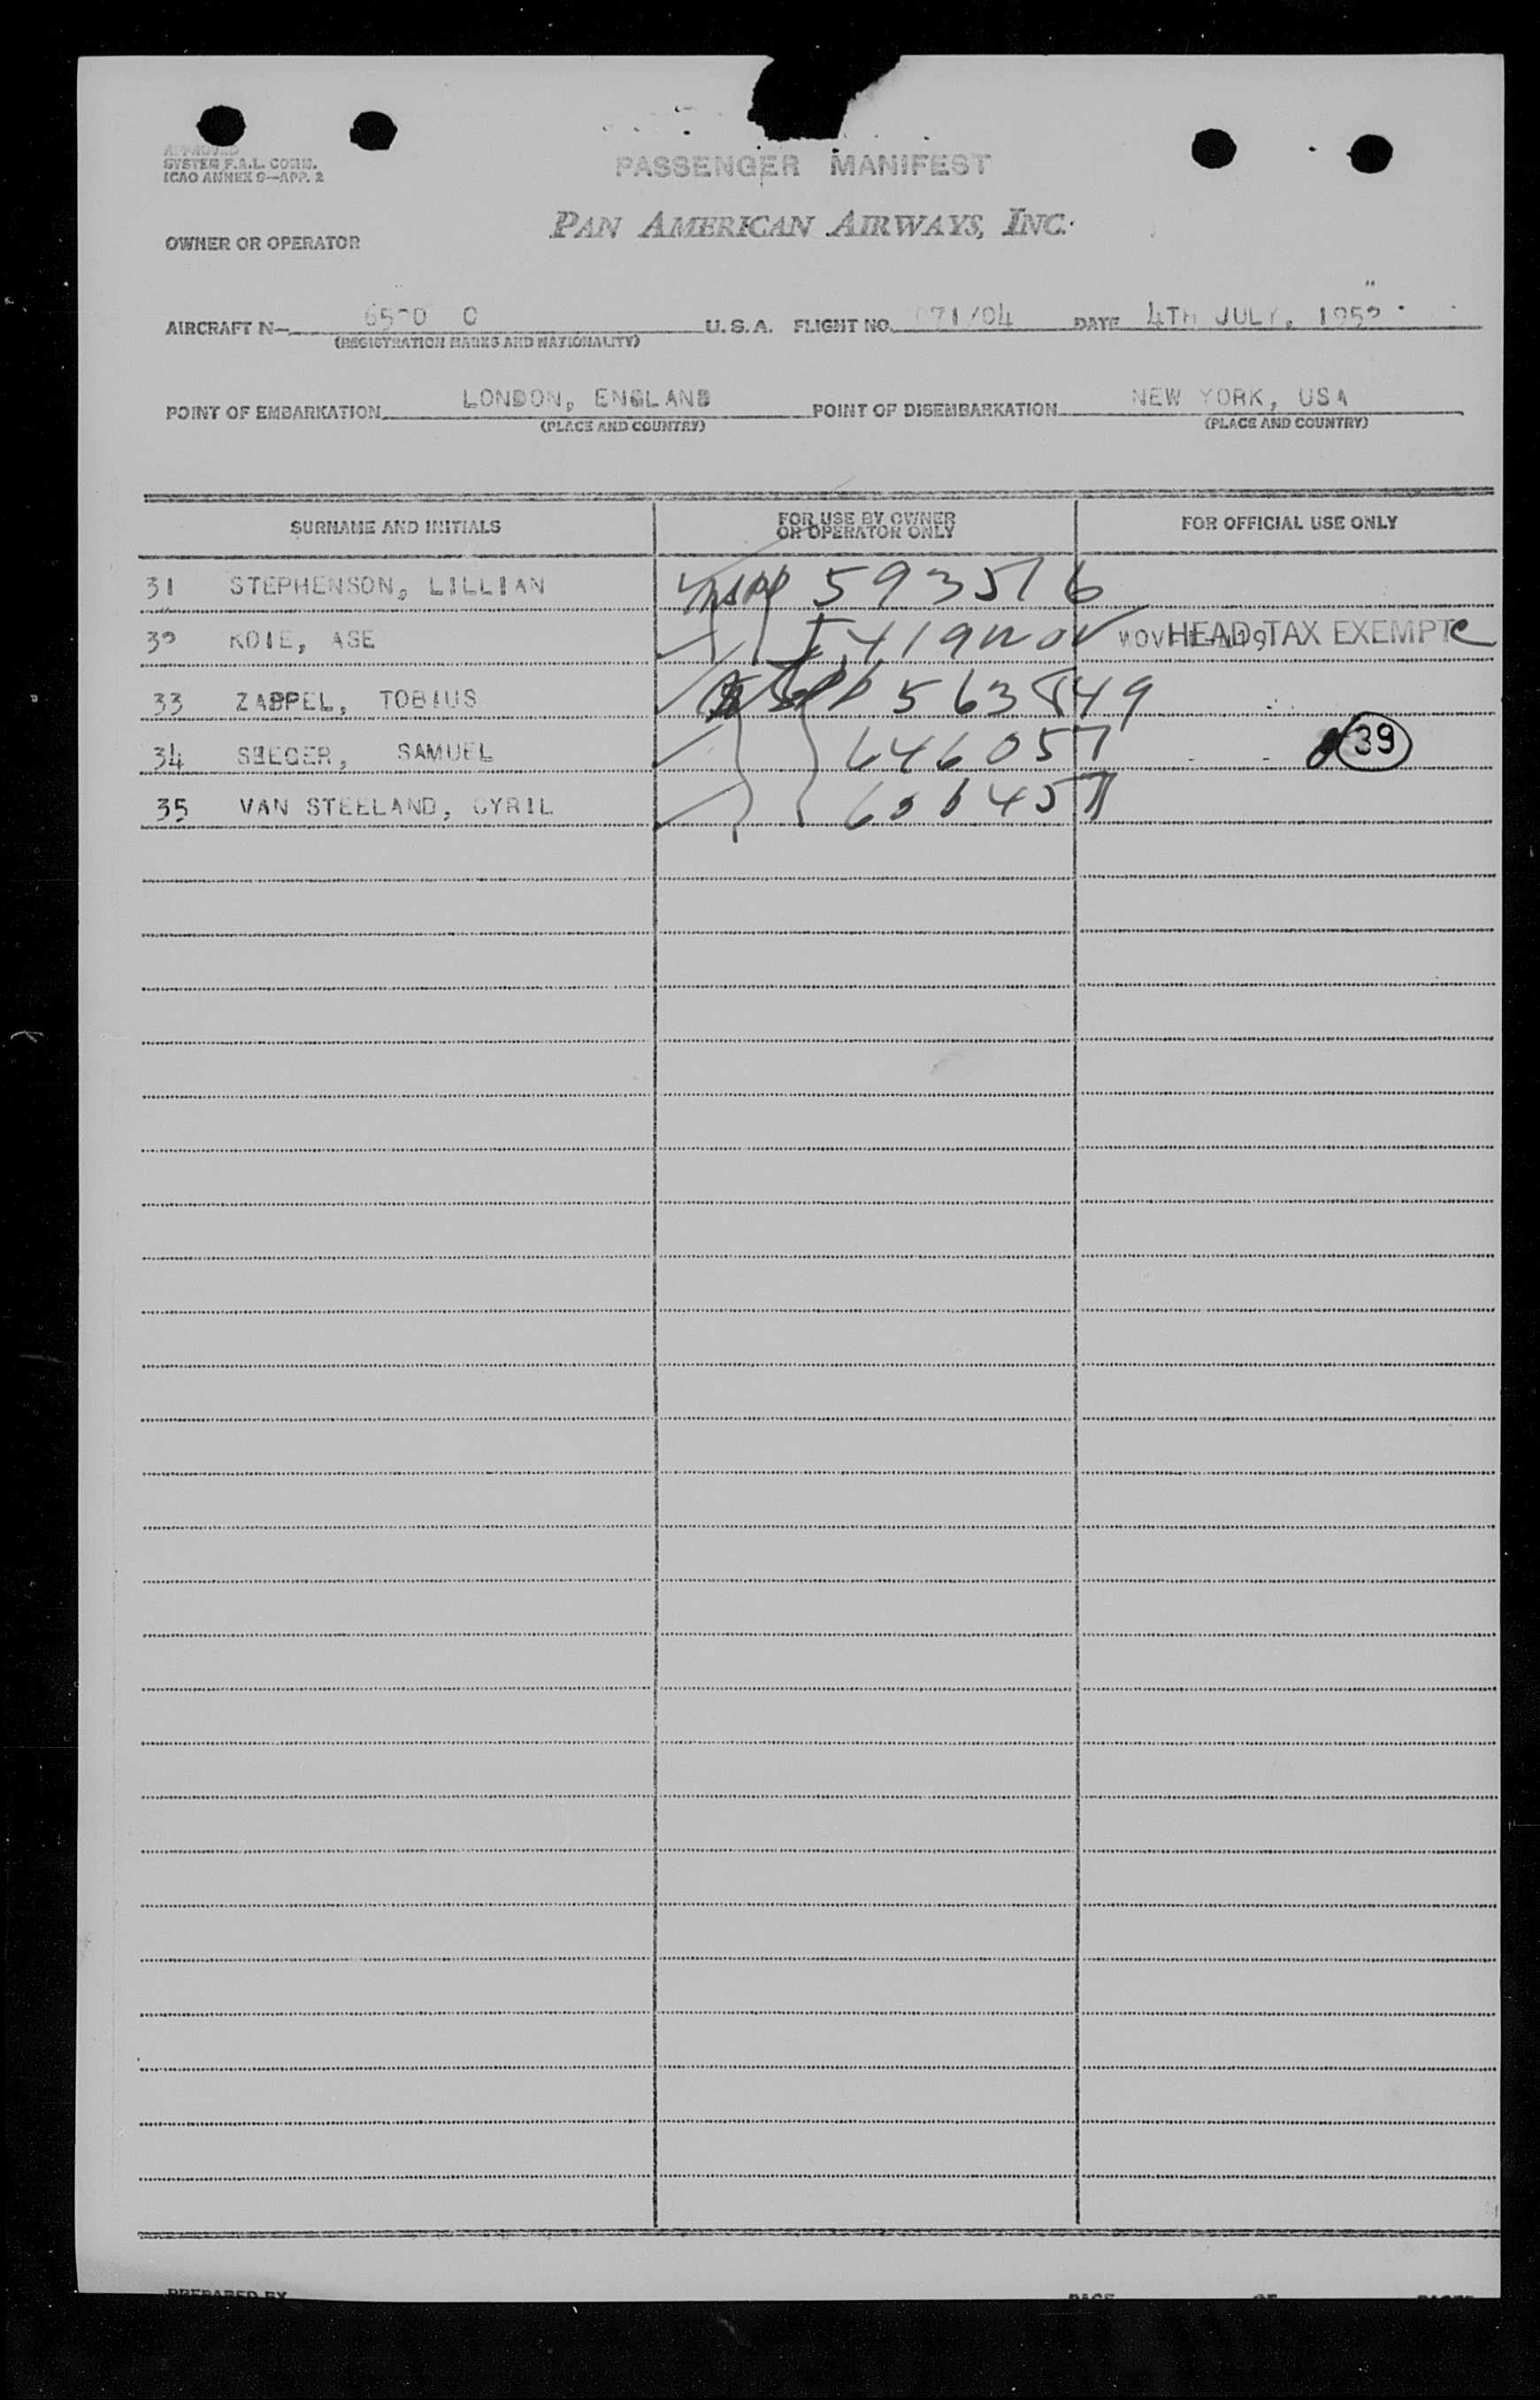 APPROVED
SYSTEM F.A.L. COMM.
ICAO ANNEX 9—APP. 2
PASSENGER MANIFEST
PAN AMERICAN AIRWAYS, INC.
OWNER OR OPERATOR
AIRCRAFT N— U. S. A. FLIGHT NO. 071/04 DATE 4TH JULY, 1952
(REGISTRATION MARKS AND NATIONALITY)
POINT OF EMBARKATION LONDON, ENGLAND POINT OF DISEMBARKATION NEW YORK, USA
(PLACE AND COUNTRY) (PLACE AND COUNTRY)
SURNAME AND INITIALS FOR USE BY OWNER OR OPERATOR ONLY FOR OFFICIAL USE ONLY
31 STEPHENSON, LILLIAN USPP 593516
32 KOIE, ASE HEAD TAX EXEMPT
33 ZAPPEL, TOBIUS 563849
34 SEEGER, SAMUEL 646057 39
35 VAN STEELAND, CYRIL
PREPARED BY PAGE OF PAGES